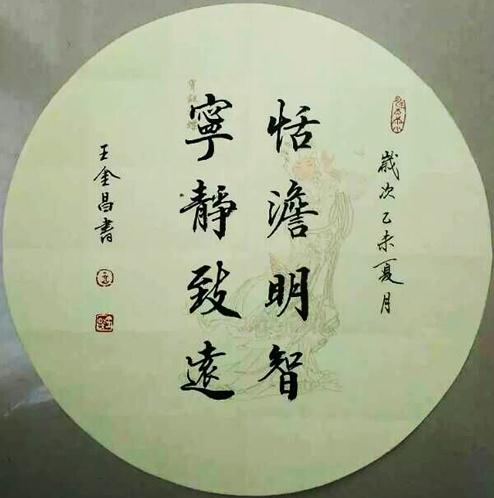 歲次乙未夏月
恬澹明智
寧靜致遠
王金昌書